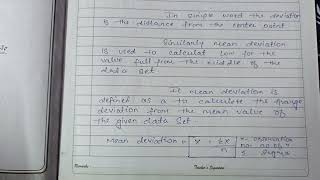 In simple word the deviation
is the distance from the center point
Similarly mean deviation
is used to calculat how far the
value full from the middle of the
data set.
It mean deviation is
defined as a to calculate the
deviation from the mean value of
the given data set
Mean deviation = X = ΣX
n
Remarks
Teacher's Signature